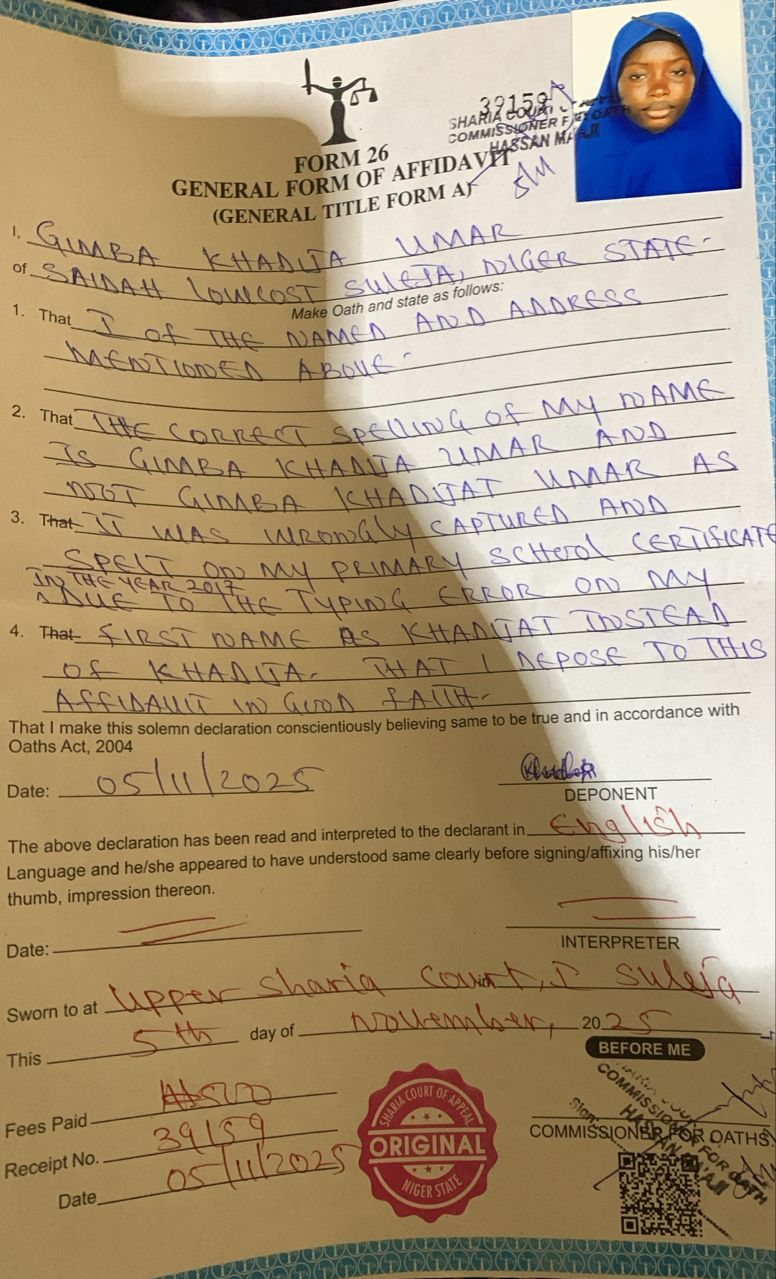 39159
SHARIA COURT
COMMISSIONER F
HASSAN MA'AJI
FORM 26
GENERAL FORM OF AFFIDAVIT
(GENERAL TITLE FORM A)
I, GIMBA KHADIJA UMAR
of SAIDAH LOWCOST SULEJA, NIGER STATE-
Make Oath and state as follows:
1. That I OF THE NAMED AND ADDRESS
MENTIONED ABOVE-
2. That THE CORRECT SPELLING OF MY NAME
IS GIMBA KHADIJA UMAR AND
NOT GIMBA KHADIJAT UMAR AS
3. That IT WAS WRONGLY CAPTURED AND
SPELT ON MY PRIMARY SCHOOL CERTIFICATE
IN THE YEAR 2017
DUE TO THE TYPING ERROR ON MY
4. That FIRST NAME AS KHADIJAT INSTEAD
OF KHADIJA. THAT I DEPOSE TO THIS
AFFIDAVIT IN GOOD FAITH-
That I make this solemn declaration conscientiously believing same to be true and in accordance with
Oaths Act, 2004
Date: 05/11/2025
DEPONENT
The above declaration has been read and interpreted to the declarant in English
Language and he/she appeared to have understood same clearly before signing/affixing his/her
thumb, impression thereon.
Date:
INTERPRETER
Sworn to at Upper Sharia Court, I Suleja
This 5th day of November, 2025
BEFORE ME
Fees Paid
Receipt No. 39159
Date 05/11/2025
SHARIA COURT OF APPEAL
ORIGINAL
NIGER STATE
COMMISSIONER FOR OATHS
COMMISSIONER FOR OATH
HASSAN MA'AJI